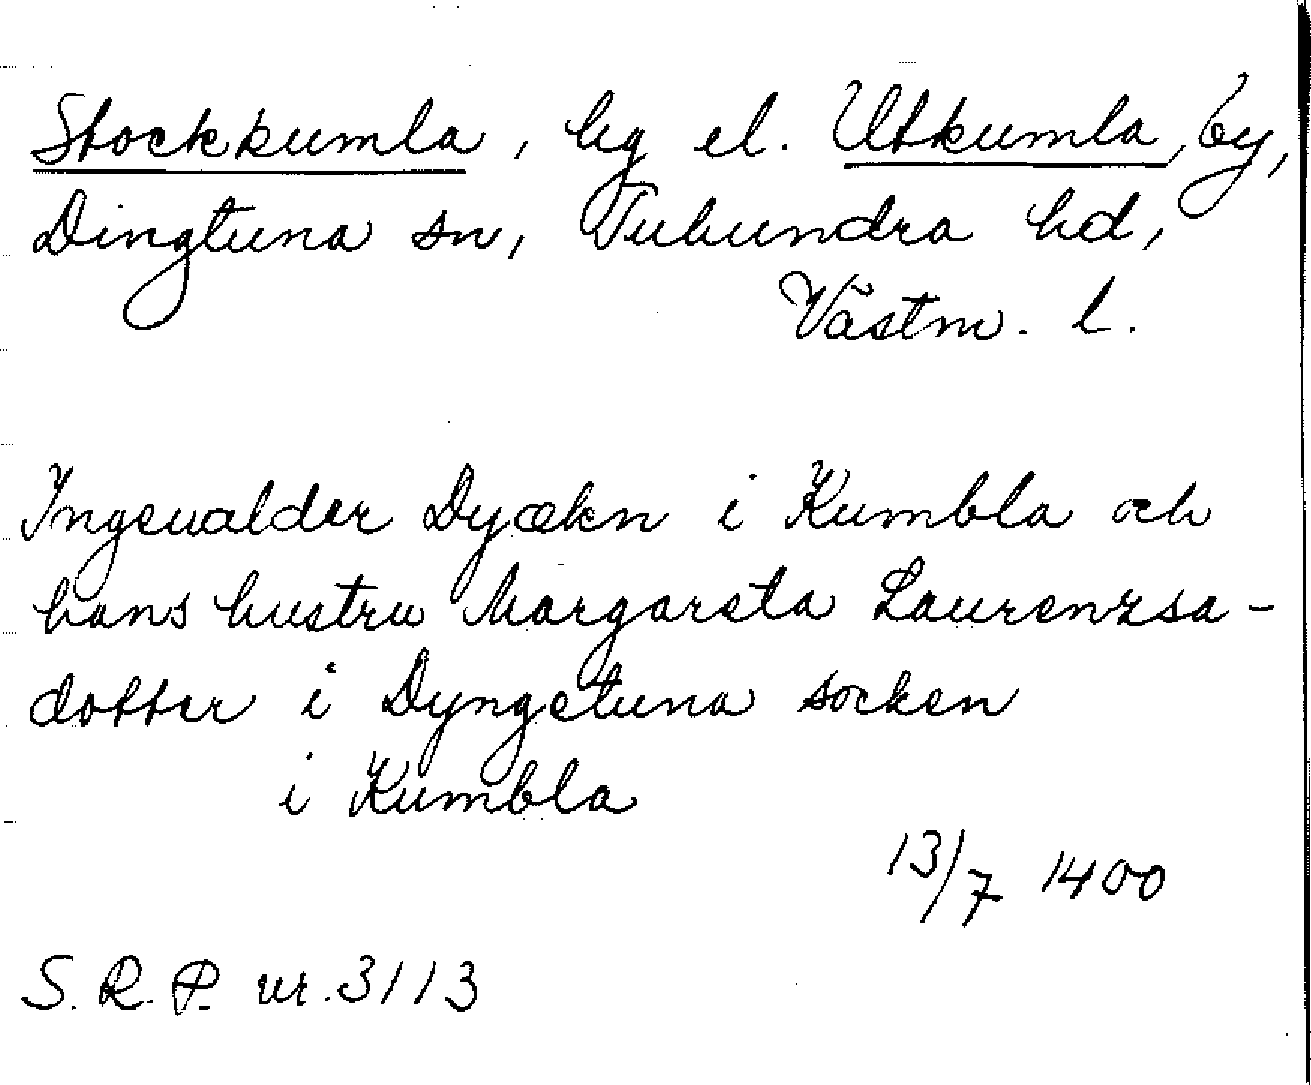 Stockkumla, hg el. Utkumla, by,
Dingtuna sn, Tuhundra hd,
Västm. l.
Ingeualder Dyækn i Kumbla och
hans hustru Margareta Laurenzsa-
dotter i Dyngetuna socken
i Kumbla
13/7 1400
S. R. P. nr. 3113